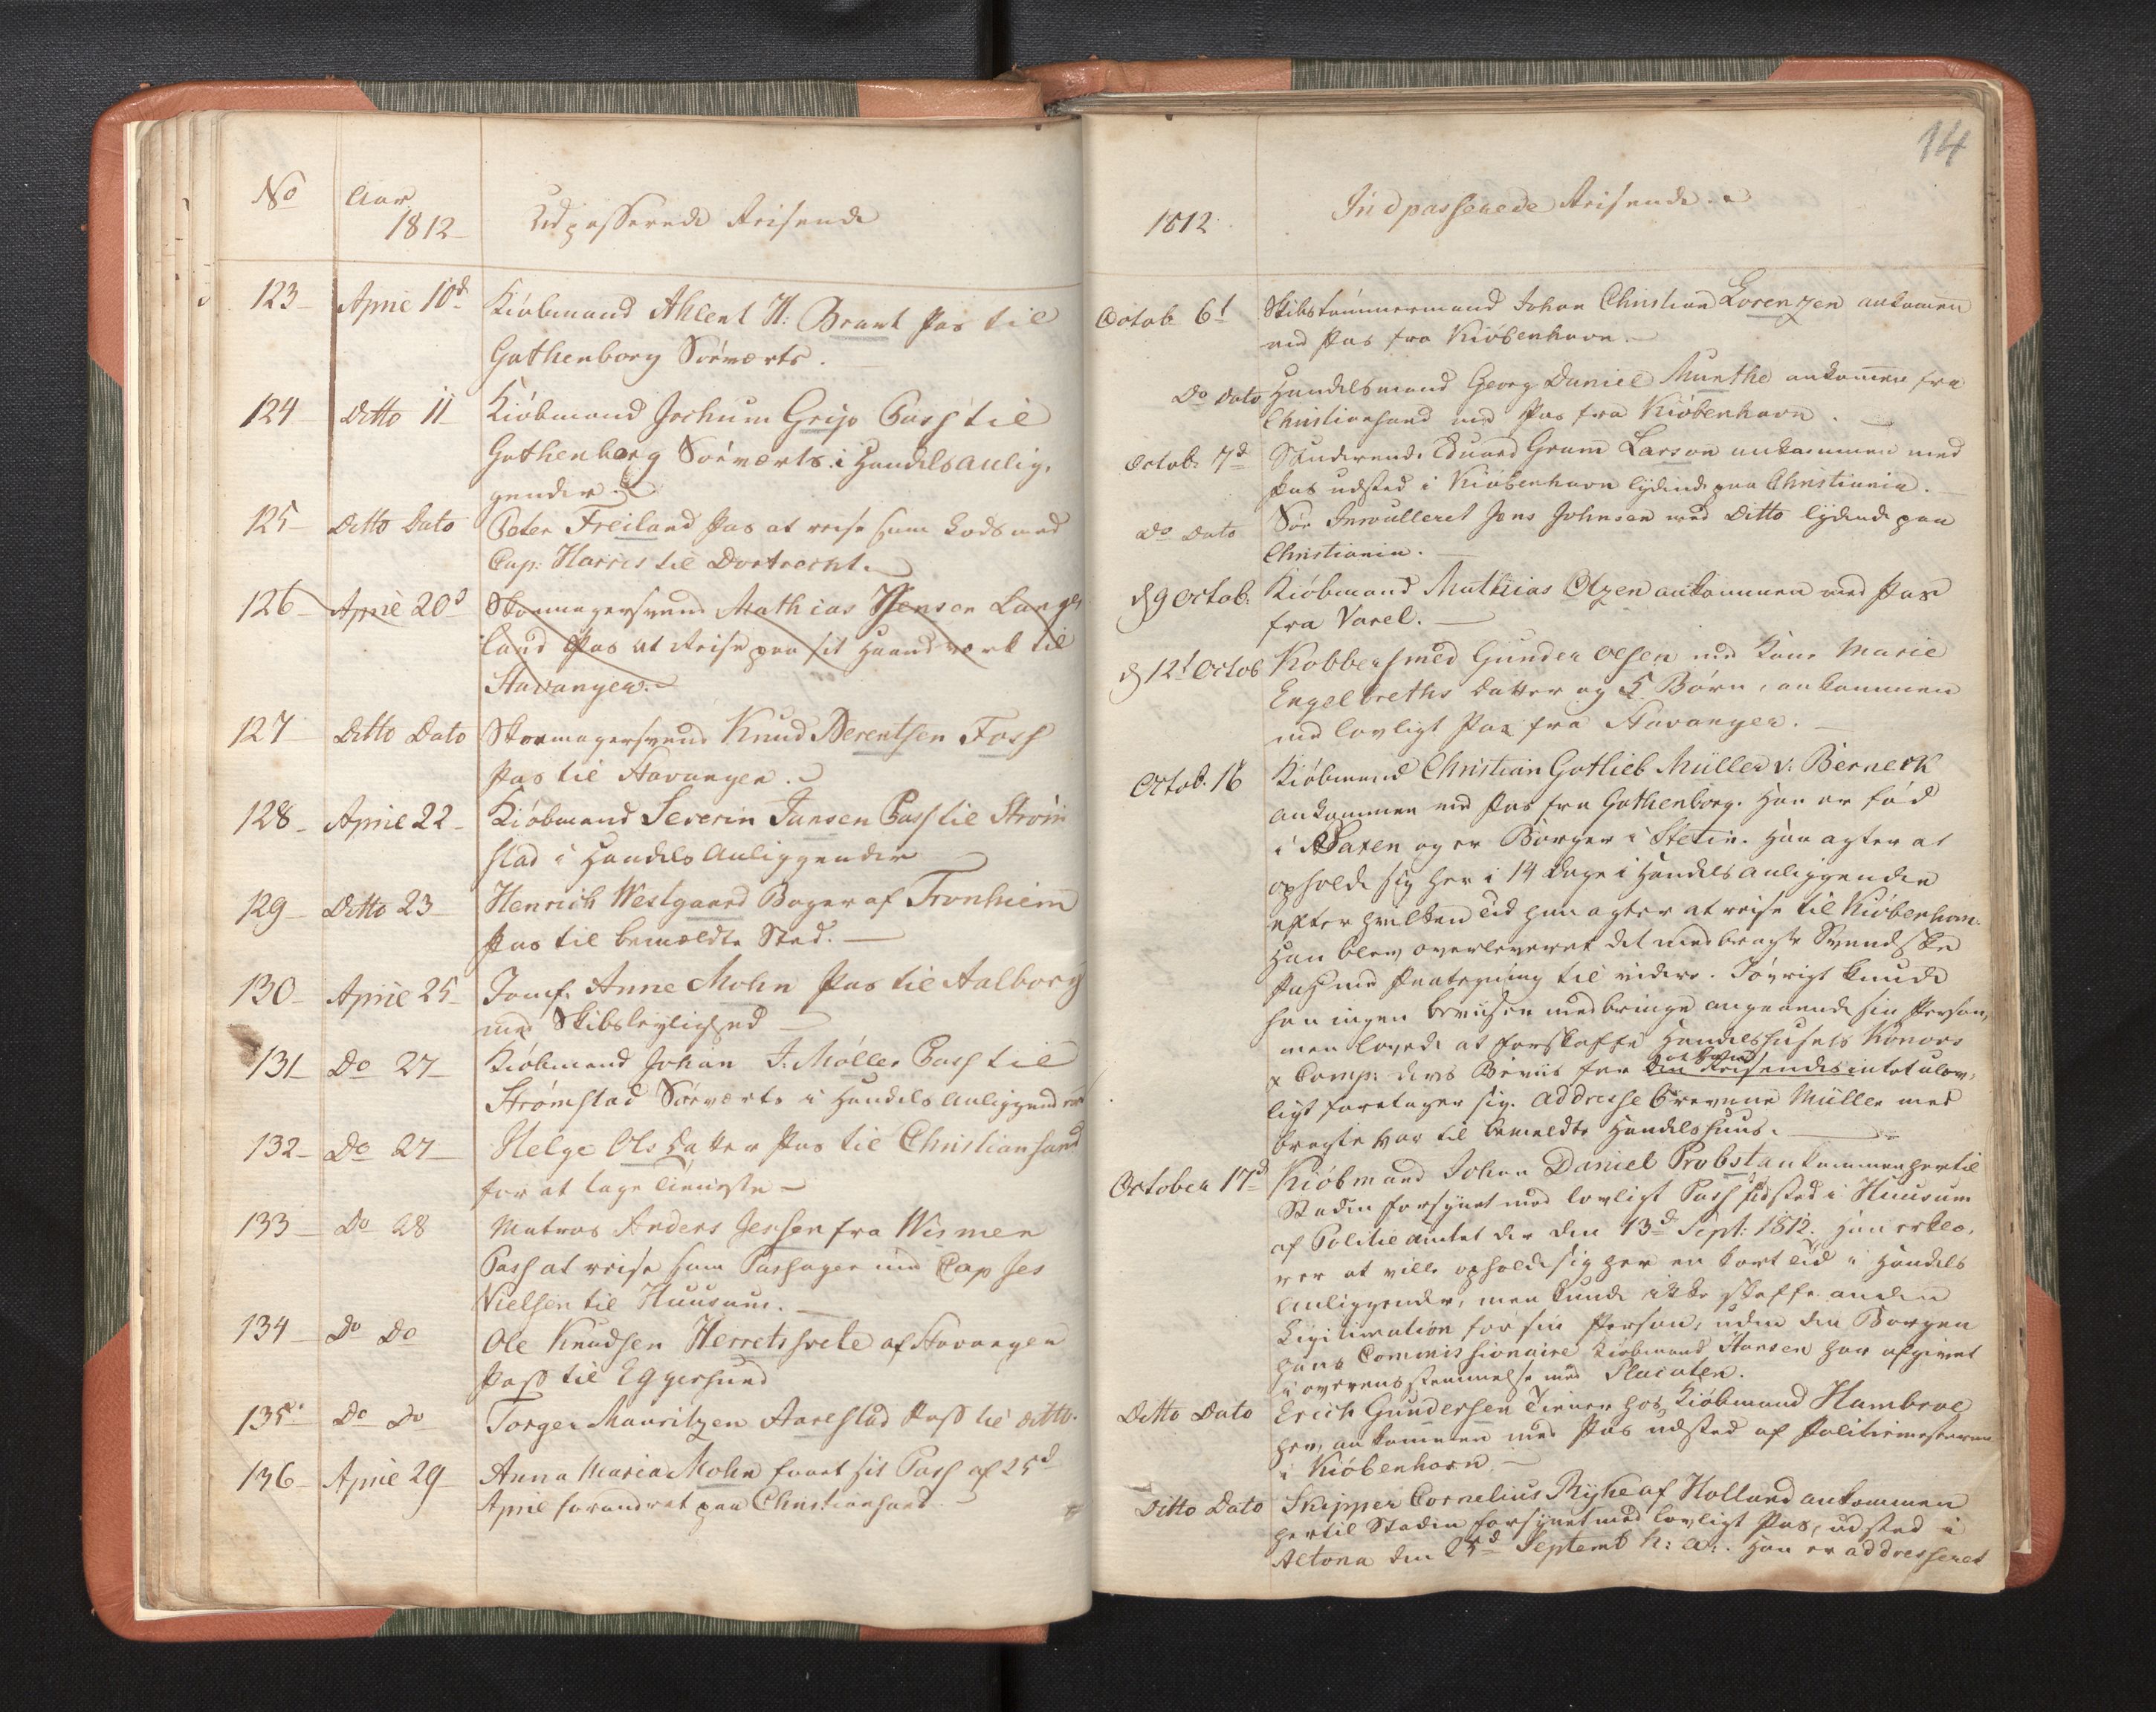 No Aar 1812 Udpasserede Reisende
123 April 10d Kiøbmand Ahlert H: Brant Pas til
Gothenborg Søeværts.
124 Ditto 11 Kiøbmand Jochum Grip Pass til
Gothenborg Søeværts i Handels Anlig,
gender.
125 Ditto Dato Peter Freiland Pas at reise som Lods med
Cap: Harris til Dortrecht.
126 April 20d Skomagersvend Mathias Jensen Lange
land Pas at Reise paa sit Haandværk til
Stavanger.
127 Ditto Dato Skomagersvend Knud Berentsen Foss
Pas til Stavanger.
128 April 22 Kiøbmand Severin Jansen Pass til Strøm
stad i Handels Anliggender
129 Ditto 23 Henrich Westgaard Boger af Tronhiem
Pas til bemældte Sted.
130 April 25 Jomf. Anne Mohn Pas til Aalborg
med Skibsleylighed
131 Do 27 Kiøbmand Johan J. Møller Pass til
Strømstad Søeværts i Handels Anliggender
132 Do 27 Helge Ols Datter Pas til Christiansand
for at tage Tieneste
133 Do 28 Matros Anders Jessen fra Wismer
Pass at reise som Passager med Cap Jes
Nielsen til Huusum.
134 Do Do Ole Knudsen Herretsvele af Stavanger
Pass til Eggersund
135 Do Do Torger Mauritzen Aarestad Pass til ditto.
136 April 29 Anna Maria Mohn faaet sit Pass af 25d
April forandret paa Christiansand
14
1812 Indpasserede Reisende.
Octob 6t Skibstømmermand Johan Christian Lorenzen ankomen
med Pas fra Kiøbenhavn.
Do Dato Handelsmand Georg Daniel Munthe ankomen fra
Christiansand med Pas fra Kiøbenhavn.
Octob. 7d Studerende Eduard Gram Larson ankommen med
Pas udsted i Kiøbenhavn lydende paa Christiania.
Do Dato Søe Inroulleret Jens Johnsen med Ditto lydende paa
Christiania.
d 9 Octob. Kiøbmand Mathias Olzen ankommen med Pas
fra Varel.
d 12t Octob Kobbersmed Gunder Olsen med Kone Marie
Engelbreths Datter og 5 Børn, ankommen
med lovligt Pas fra Stavanger.
Octob. 16 Kiøbmand Christian Gotlieb Müller v: Bernerk
ankommen med Pas fra Gothenborg. Han er fød
i Saxen og er Borger i Stetin. Han agter at
opholde sig her i 14 Dage i Handels anliggender
efter hvilken Tid han agter at reise til Kiøbenhavn.
Han blev overleveret det medbragte Svendske
Pass med Paategning til videre. Iøvrigt kunde
han ingen Beviiser medbringe angaaende sin Person,
men lovede at forskaffe Handelshusets Konows
& Comp: deres Beviis for at den Reisende intet ulov,
ligt foretager sig. Addresse Brevene Müller med
bragte var til bemeldte Handelshuus.
October 17d Kiøbmand Johan Daniel Probst ankommen hertil
Staden forsynet med lovligt Pass udsted i Huusum
af Politie Amtet der den 13d Sept: 1812. Han erklæ,
rer at ville opholde sig her en kort Tid i Handels
Anliggender, men kunde ikke skaffe anden
Legitimation for sin Person, uden den Borgen
hans Commissionaire Kiøbmand Hansen har afgivet
i overensstemmelse med Placaten.
Ditto Dato Erich Gundersen Tiener hos Kiøbmand Hambroe
her, ankommen med Pas udsted af Politiemesteren
i Kiøbenhavn.
Ditto Dato Skipper Cornelius Ryke af Holland ankommen
hertil Staden forsynet med lovligt Pas, udsted i
Altona den 25d Septemb h: a:. Han er addresseret